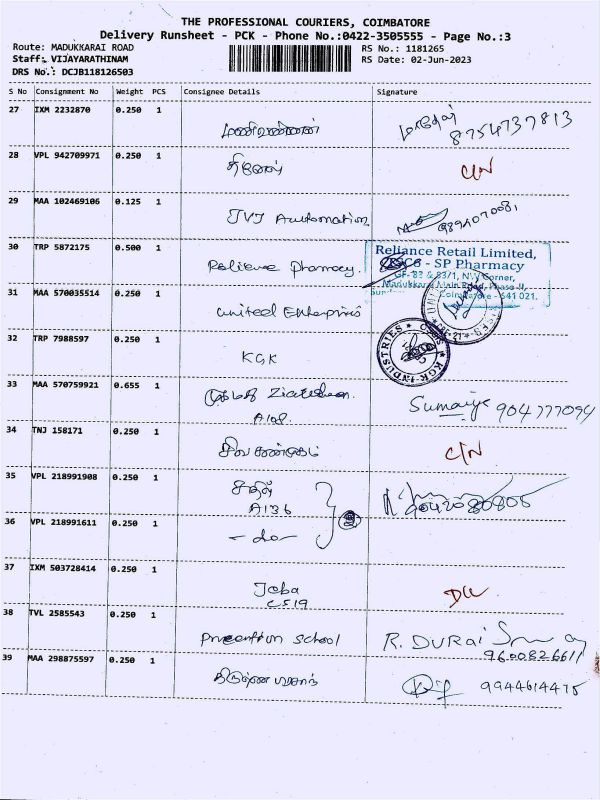 THE PROFESSIONAL COURIERS, COIMBATORE
Delivery Runsheet - PCK - Phone No.:0422-3505555 - Page No.:3
Route: MADUKKARAI ROAD RS No.: 1181265
Staff: VIJAYARATHINAM RS Date: 02-Jun-2023
DRS No.: DCJB118126503
S No Consignment No Weight PCS Consignee Details Signature
27 IXM 2232870 0.250 1
8754737813
28 VPL 942709971 0.250 1
C/N
29 MAA 102469106 0.125 1
JVJ Automation 9894070081
30 TRP 5872175 0.500 1
Reliance Pharmacy.
Reliance Retail Limited,
- SP Pharmacy
GF-82 & 83/1, NW Corner,
Madukkarai Main Road, Phase II,
Coimbatore - 641 021.
31 MAA 570035514 0.250 1
United Enterprises
32 TRP 7988597 0.250 1
KGK
KGK INDUSTRIES
33 MAA 570759921 0.655 1
Sumaiya 904777094
A108
34 TNJ 158171 0.250 1
C/N
35 VPL 218991908 0.250 1
A136 9042080805
36 VPL 218991611 0.250 1
- do -
37 IXM 503728414 0.250 1
Jeba
C519
38 TVL 2585543 0.250 1
school R. DURAI
9600826611
39 MAA 298875597 0.250 1
9944614475